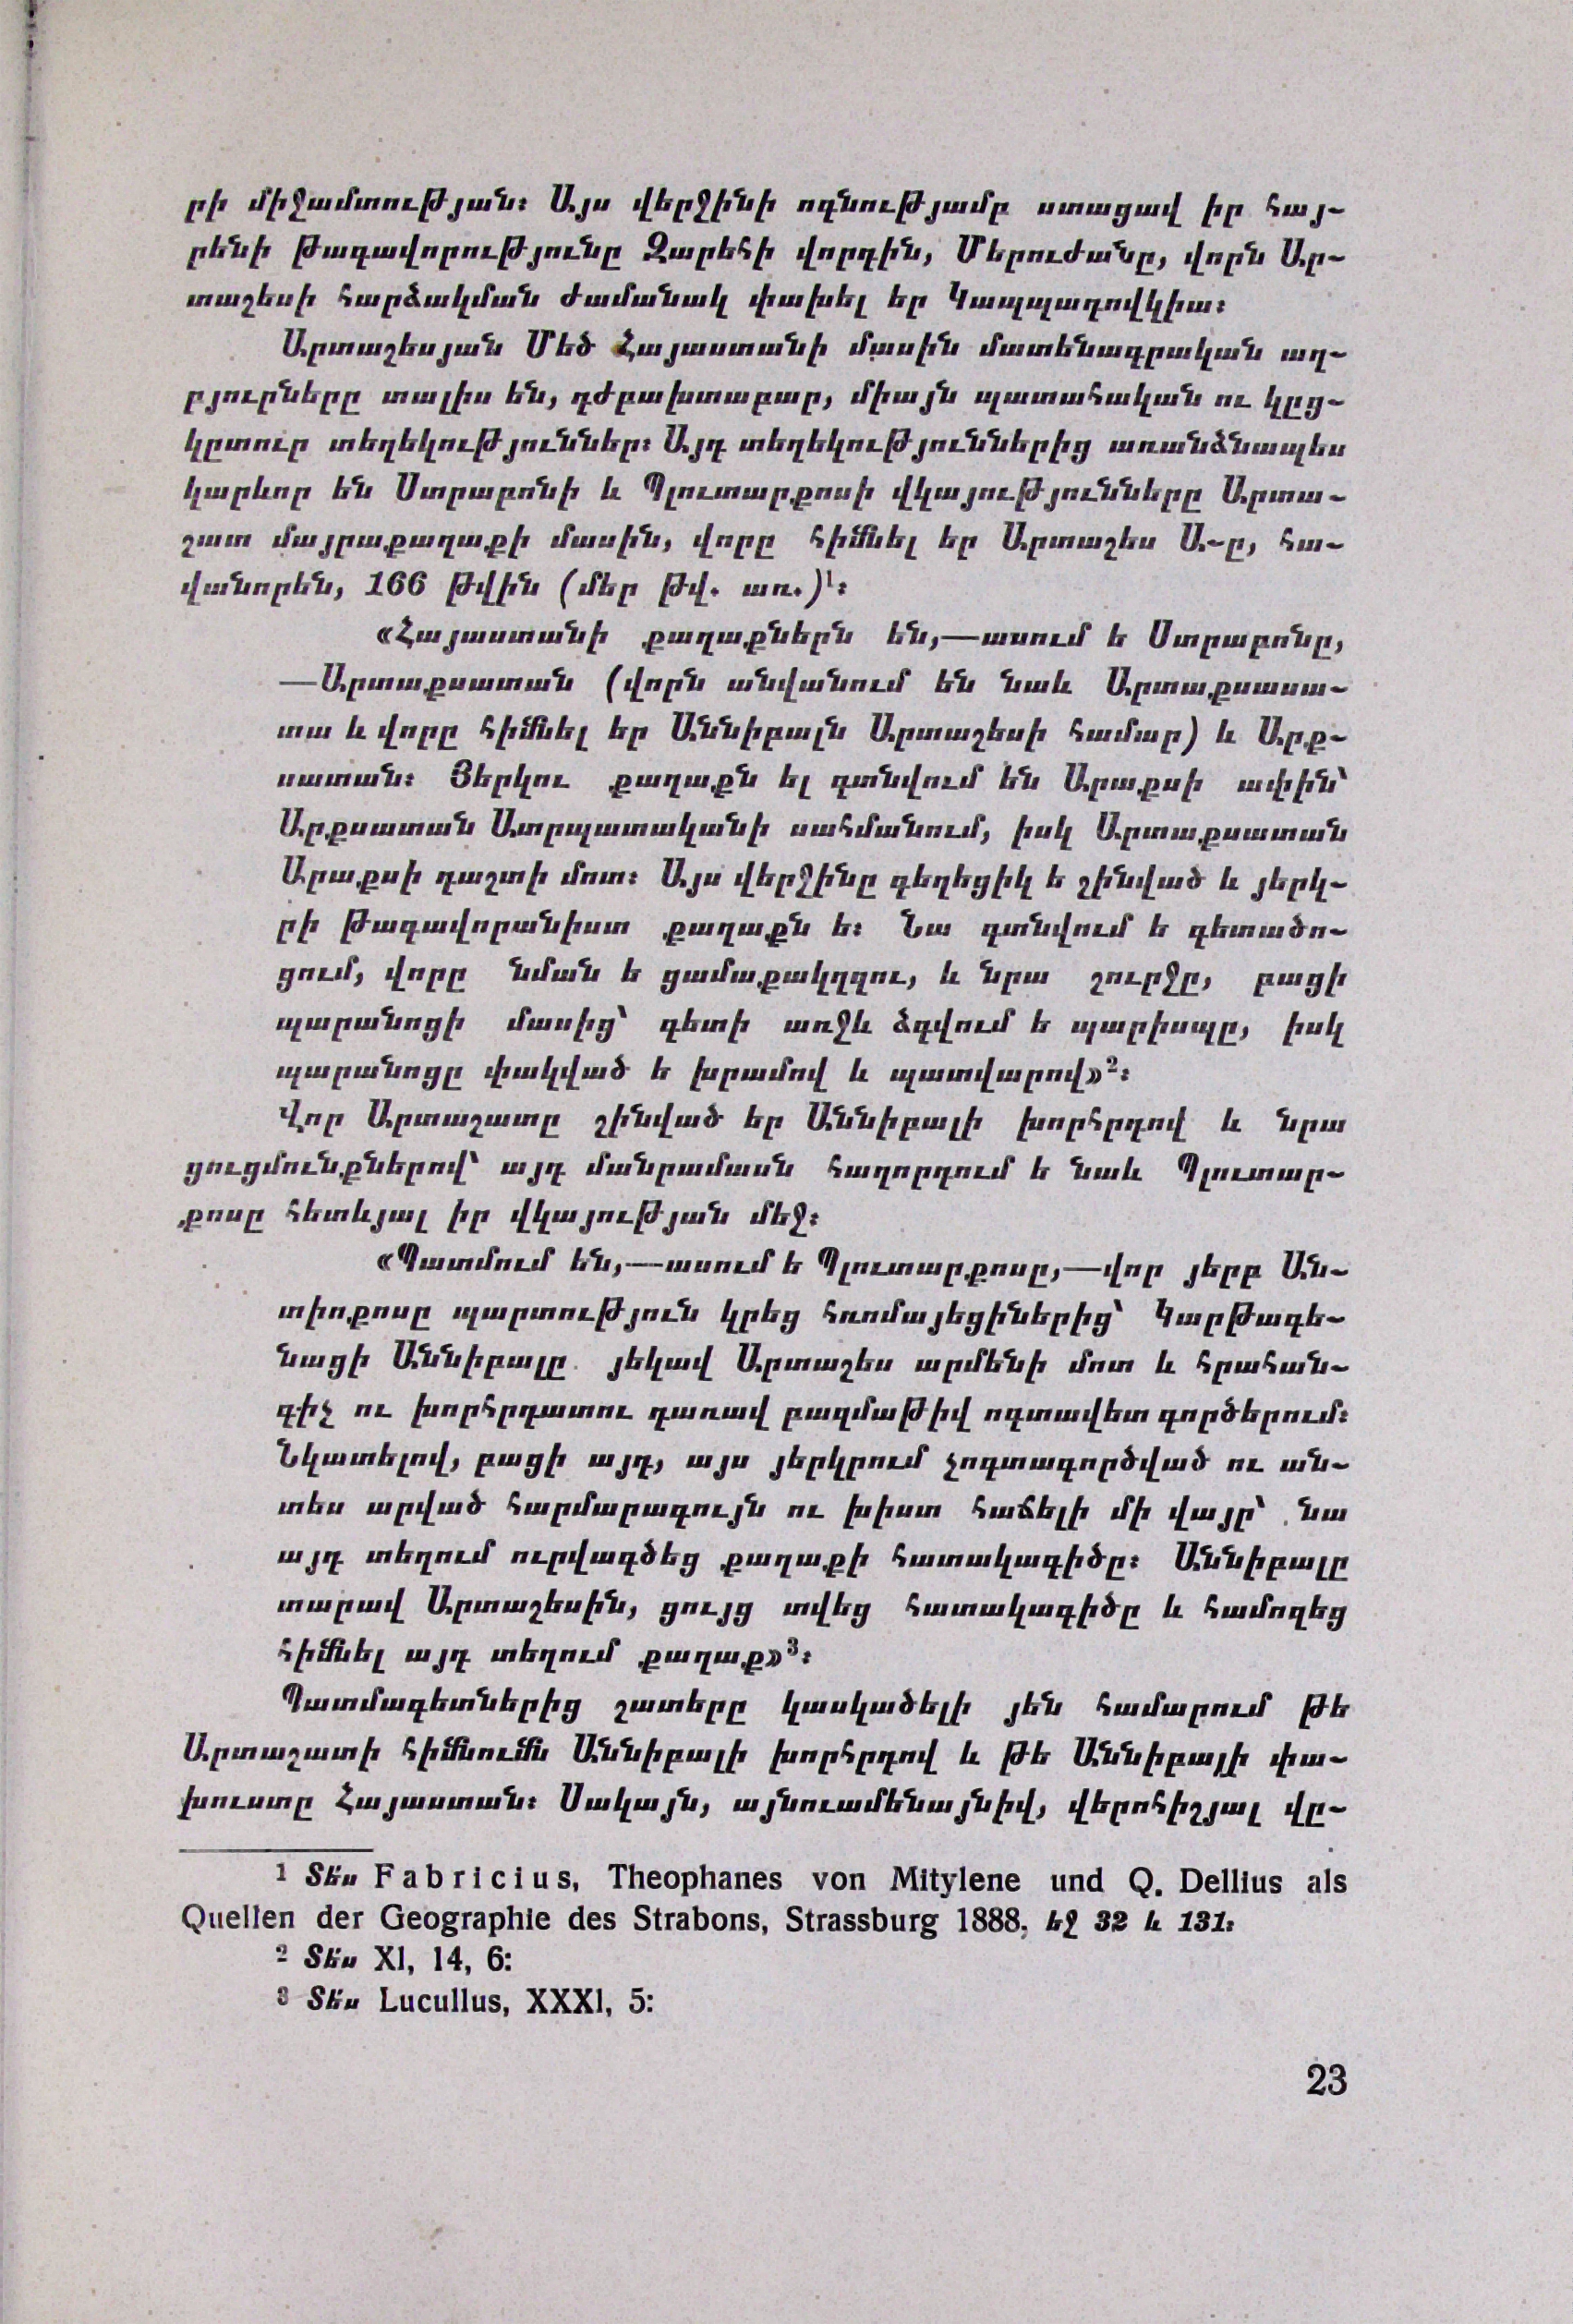 րի միջամտության։ Այս վերջինի ոգնությամբ ստացավ իր հայ-
րենի թագավորությունը Զարեհի վորդին, Մերուժանը, վորն Ար-
տաշեսի հարձակման ժամանակ փախել եր Կապպադովկիա։
Արտաշեսյան Մեծ Հայաստանի մասին մատենագրական աղ-
բյուրները տալիս են, դժբախտաբար, միայն պատահական ու կըց-
կըտուր տեղեկություններ։ Այդ տեղեկություններից առանձնապես
կարևոր են Ստրաբոնի և Պլուտարքոսի վկայությունները Արտա-
շատ մայրաքաղաքի մասին, վորը հիմնել եր Արտաշես Ա-ը, հա-
վանորեն, 166 թվին (մեր թվ. առ.)¹։
«Հայաստանի քաղաքներն են,—ասում ե Ստրաբոնը,
—Արտաքսատան (վորն անվանում են նաև Արտաքսասա-
տա և վորը հիմնել եր Աննիբալն Արտաշեսի համար) և Արք-
սատան։ Յերկու քաղաքն ել գտնվում են Արաքսի ափին՝
Արքսատան Ատրպատականի սահմանում, իսկ Արտաքսատան
Արաքսի դաշտի մոտ։ Այս վերջինը գեղեցիկ ե շինված և յերկ-
րի թագավորանիստ քաղաքն ե։ Նա գտնվում ե գետածո-
ցում, վորը նման ե ցամաքակղզու, և նրա շուրջը, բացի
պարանոցի մասից՝ գետի առջև ձգվում ե պարիսպը, իսկ
պարանոցը փակված ե խրամով և պատվարով»²։
Վոր Արտաշատը շինված եր Աննիբալի խորհրդով և նրա
ցուցմունքներով՝ այդ մանրամասն հաղորդում ե նաև Պլուտար-
քոսը հետևյալ իր վկայության մեջ։
«Պատմում են,—ասում ե Պլուտարքոսը,—վոր յերբ Ան-
տիոքոսը պարտություն կրեց հռոմայեցիներից՝ Կարթագե-
նացի Աննիբալը յեկավ Արտաշես արմենի մոտ և հրահան-
գիչ ու խորհրդատու դառավ բազմաթիվ ոգտավետ գործերում։
Նկատելով, բացի այդ, այս յերկրում չոգտագործված ու ան-
տես արված հարմարագույն ու խիստ հաճելի մի վայր՝ նա
այդ տեղում ուրվագծեց քաղաքի հատակագիծը։ Աննիբալը
տարավ Արտաշեսին, ցույց տվեց հատակագիծը և համոզեց
հիմնել այդ տեղում քաղաք»³։
Պատմագետներից շատերը կասկածելի յեն համարում թե
Արտաշատի հիմնումն Աննիբալի խորհրդով և թե Աննիբալի փա-
խուստը Հայաստան։ Սակայն, այնուամենայնիվ, վերոհիշյալ վը-
¹ Տե՛ս Fabricius, Theophanes von Mitylene und Q. Dellius als
Quellen der Geographie des Strabons, Strassburg 1888, եջ 32 և 131։
² Տե՛ս XI, 14, 6։
³ Տե՛ս Lucullus, XXXI, 5։
23